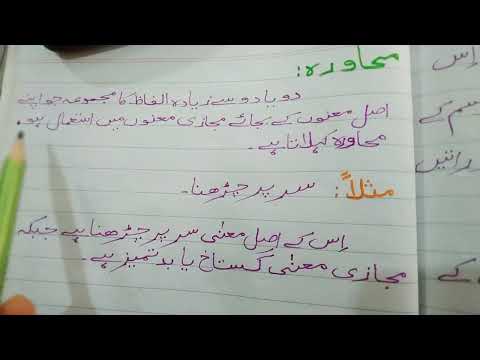 محاورہ:
دو یا دو سے زیادہ الفاظ کا مجموعہ جو اپنے
اصل معنوں کے بجائے مجازی معنوں میں استعمال ہو،
محاورہ کہلاتا ہے۔
مثلاً: سر پر چڑھنا۔
اِس کے اصل معنٰی سر پر چڑھنا ہے جبکہ
مجازی معنٰی گستاخ یا بدتمیز ہے۔
اِس
کے
کے